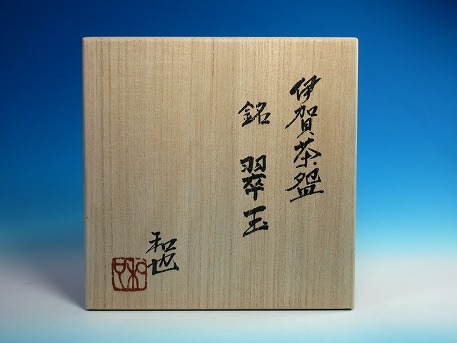 伊賀茶盌
銘 翠玉
和也